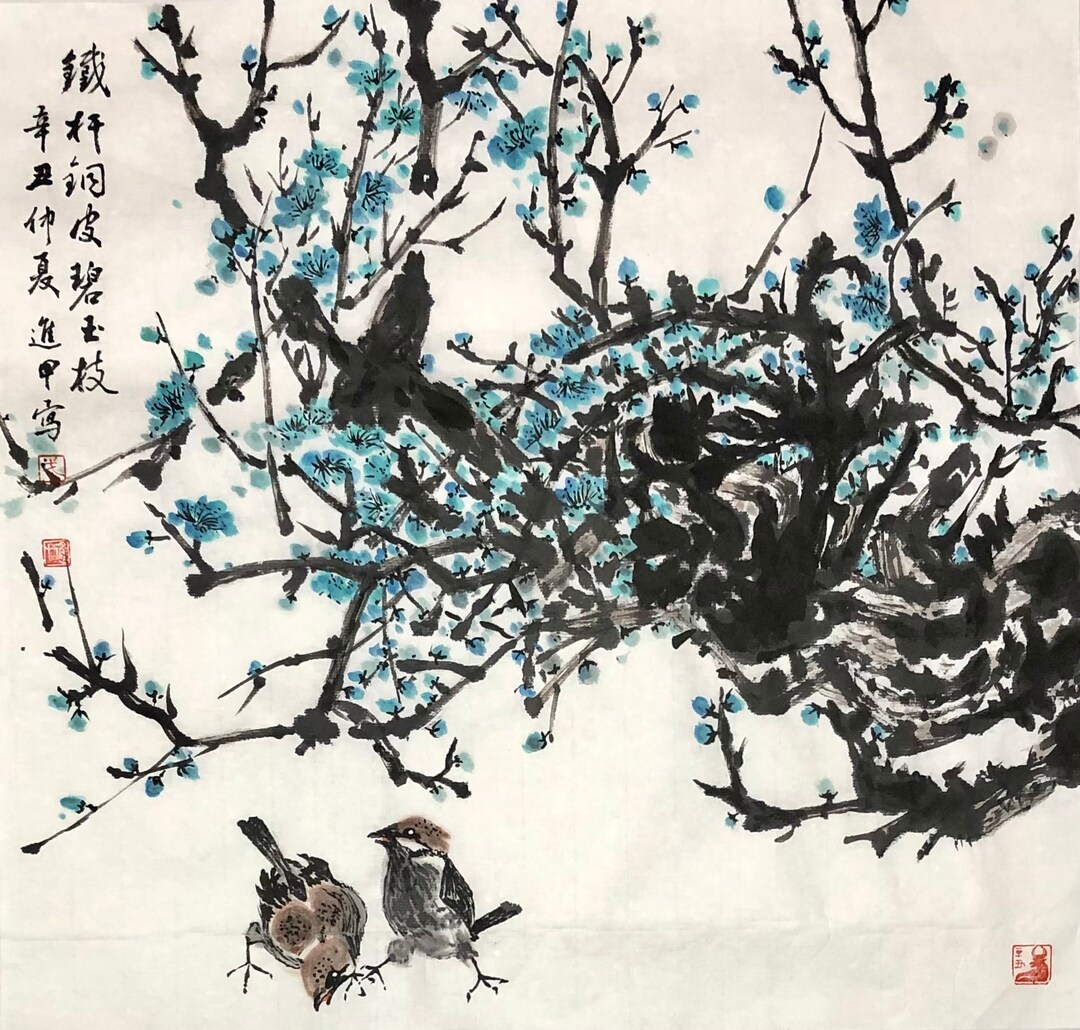 鐵杆銅皮碧玉枝
辛丑仲夏進甲寫
辛丑